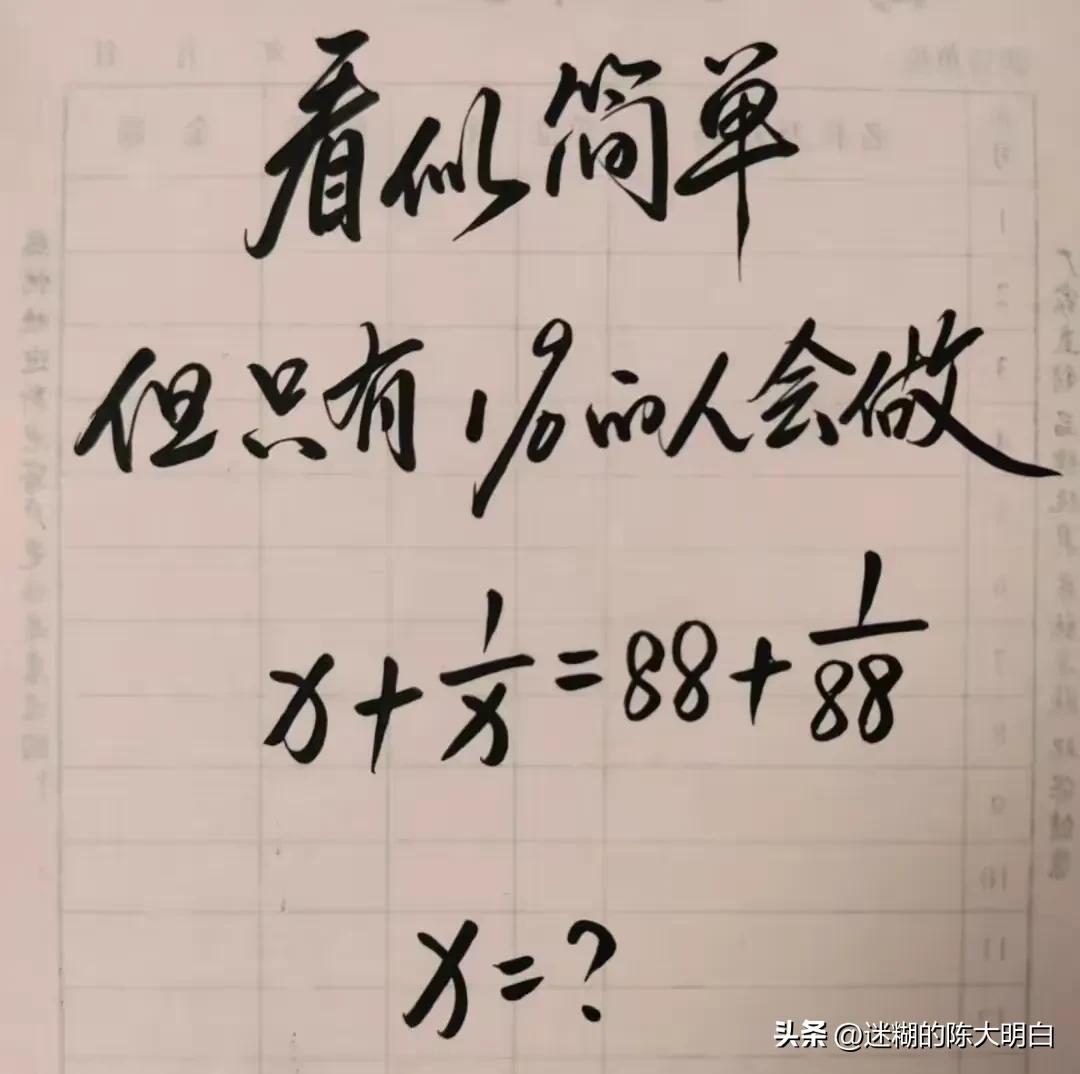 看似简单
但只有1%的人会做
x+1/x=88+1/88
x=?
头条 @迷糊的陈大明白